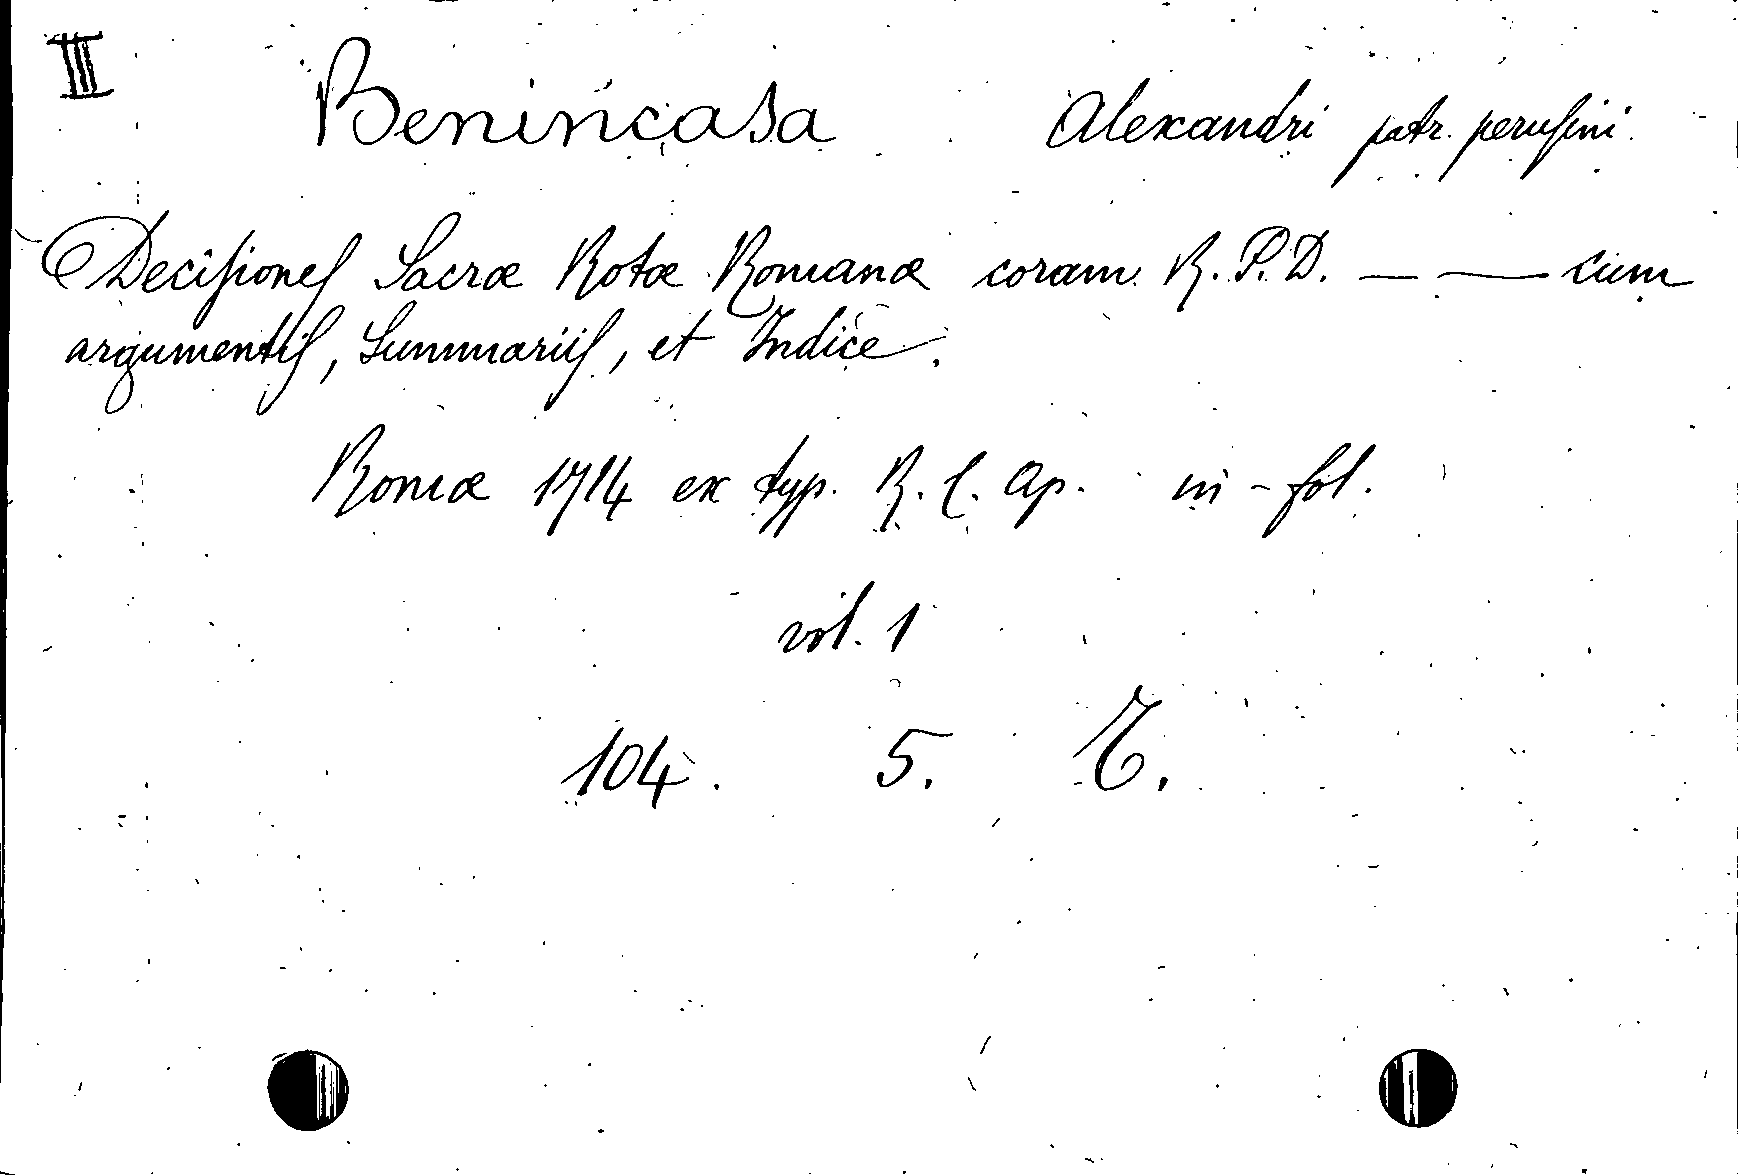 III
Benincasa Alexandri patr. peruſini.
Deciſioneſ Sacræ Rotæ Romanæ coram R. P. D. — — cum
argumentiſ, Summariiſ, et Indice.
Romæ 1714 ex typ. R. C. Ap. in-fol.
vol. 1
104. 5. T.